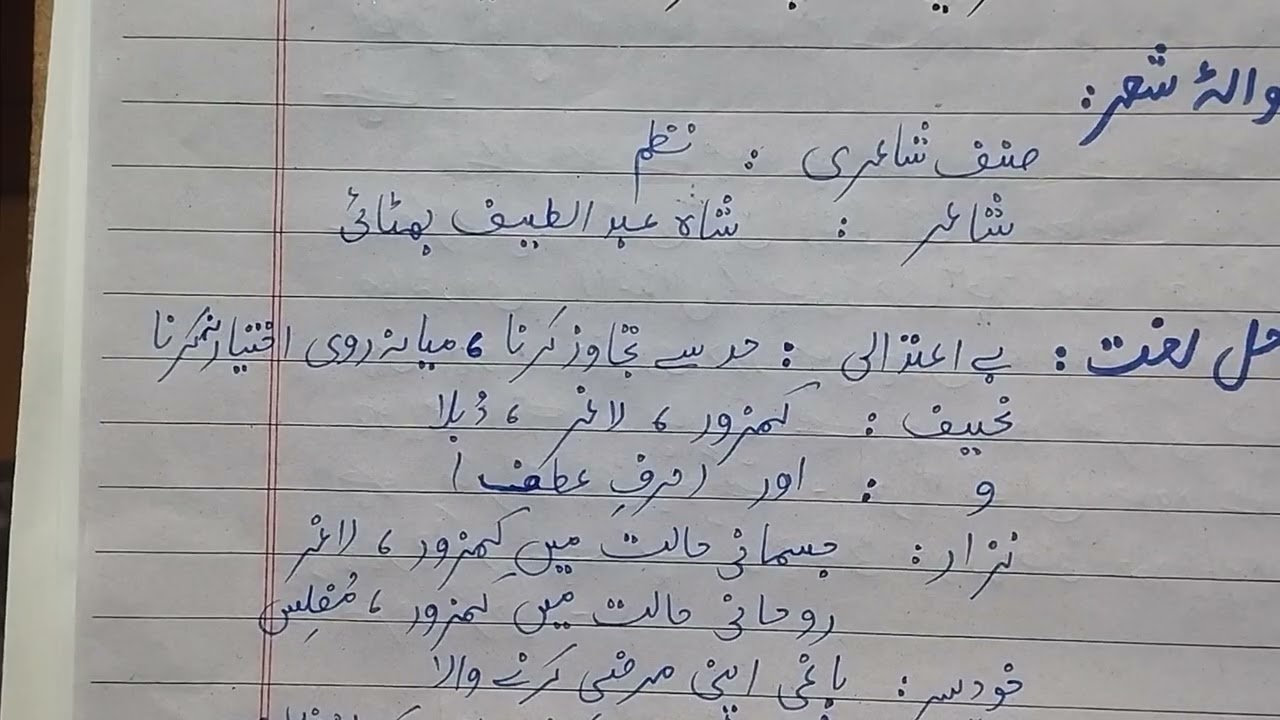 والۂ شعر:
صنف شاعری : نظم
شاعر : شاہ عبدالطیف بھٹائیؒ
حل لغت: بے اعتدالی : حد سے تجاوز کرنا ، میانہ روی اختیار نہ کرنا
نحیف : کمزور ، لاغر ، دُبلا
و : اور (حرفِ عطف)
نزار: جسمانی حالت میں کمزور ، لاغر
روحانی حالت میں کمزور ، مُفلِس
خودسر: باغی اپنی مرضی کرنے والا